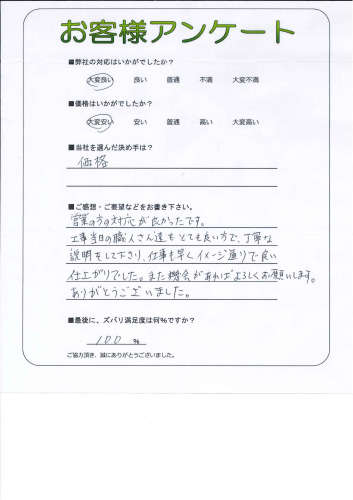 お客様アンケート
■弊社の対応はいかがでしたか？
大変良い 良い 普通 不満 大変不満
■価格はいかがでしたか？
大変安い 安い 普通 高い 大変高い
■当社を選んだ決め手は？
価格
■ご感想・ご要望などをお書き下さい。
営業の方の対応が良かったです。
工事当日の職人さん達もとても良い方で、丁寧な
説明をして下さり、仕事も早くイメージ通りで良い
仕上がりでした。また機会があればよろしくお願いします。
ありがとうございました。
■最後に、ズバリ満足度は何%ですか？
100 %
ご協力頂き、誠にありがとうございました。